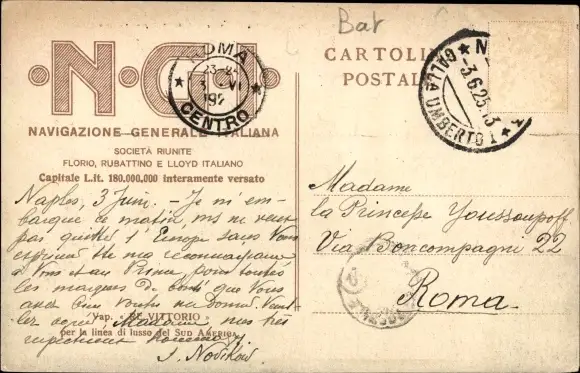 Bat
CARTOLINA
POSTALE
·N·G·I·
ROMA
CENTRO
GALL. UMBERTO I
3.6.25.13
NAVIGAZIONE GENERALE ITALIANA
SOCIETÀ RIUNITE
FLORIO, RUBATTINO E LLOYD ITALIANO
Capitale L.it. 180,000,000 interamente versato
Naples, 3 Juin. - Je m'em-
barque ce matin, mais ne veux
pas quitter l'Europe sans Vous
exprimer ma reconnaissance
à Vous et au Prince, pour toutes
les marques de bonté que Vous
avez bien voulu me donner. Veuil-
Vap. "RE VITTORIO"
lez agréer Madame mes très
per la linea di lusso del SUD AMERICA
respectueux hommages
J. Novikow
Madame
la Princesse Youssoupoff
Via Boncompagni 22
Roma